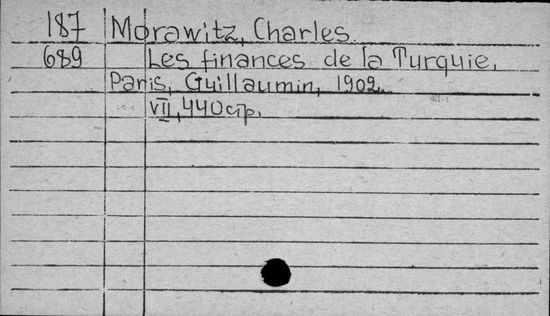 187 Morawitz, Charles.
689 Les finances de la Turquie.
Paris, Guillaumin, 1902.
VII, 440 стр.